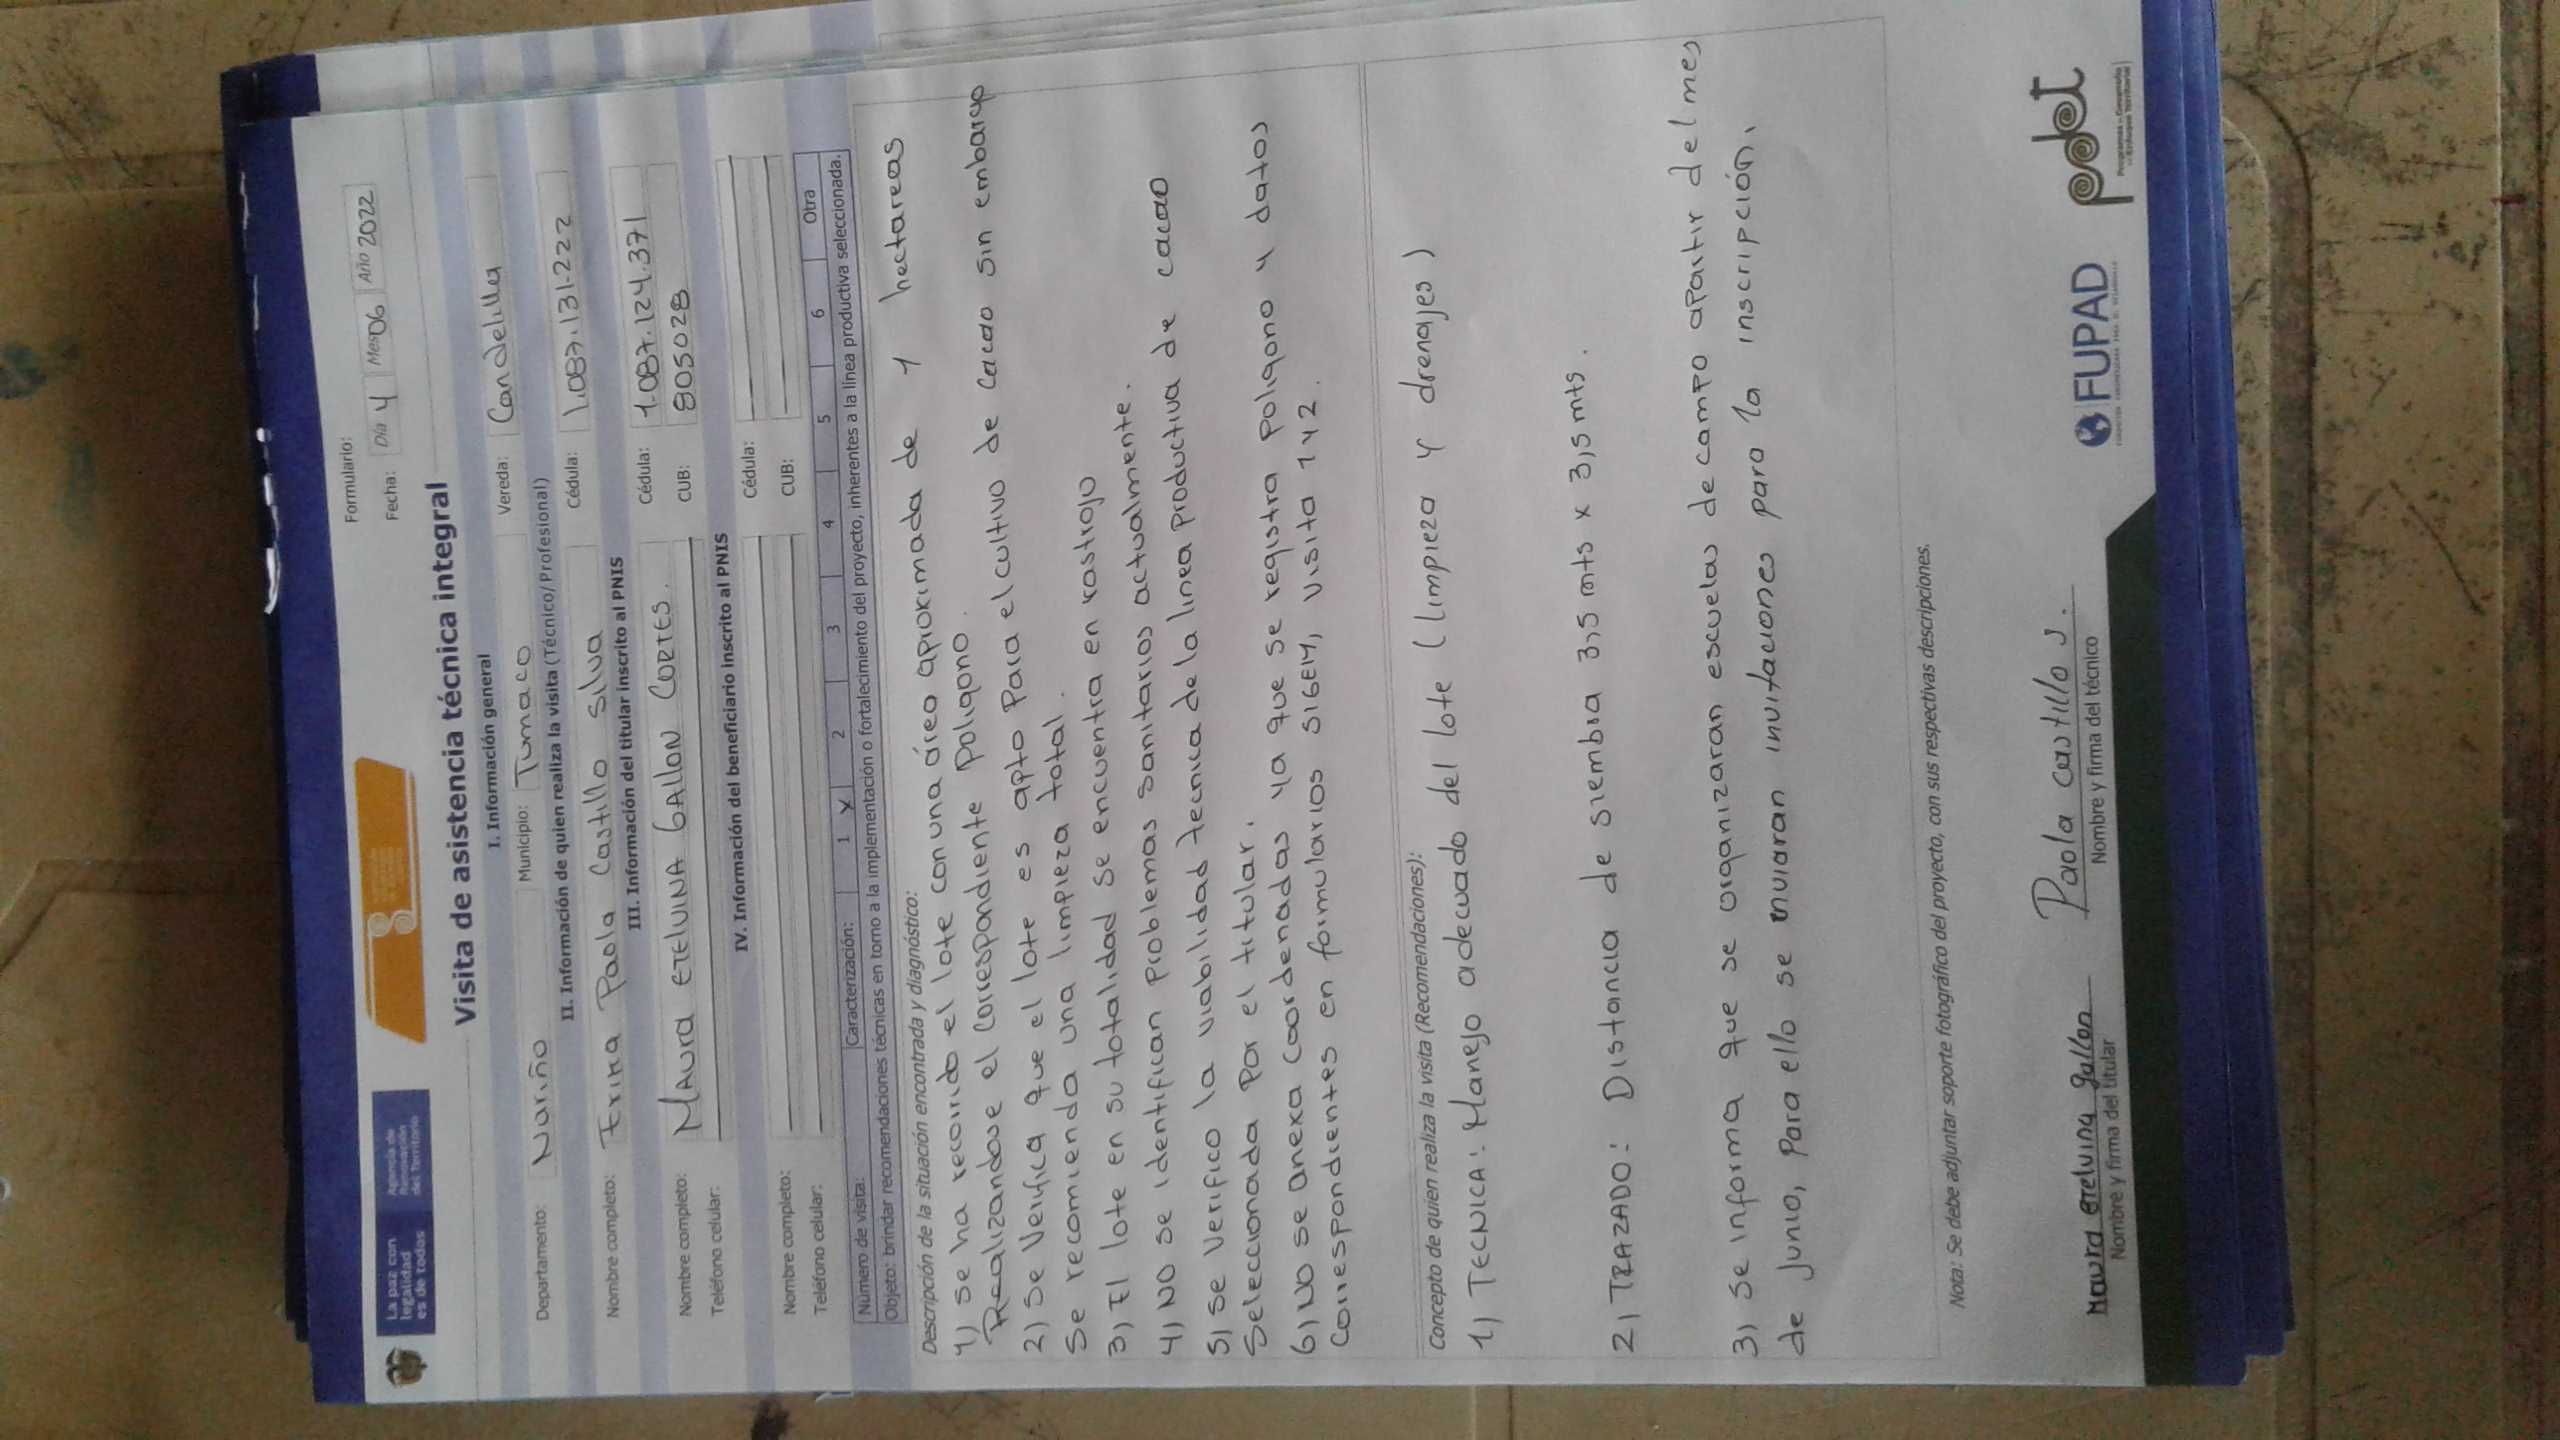 La paz con
legalidad
es de todos
Agencia de
Renovación
del Territorio
Formulario:
Fecha: Día 4 Mes 06 Año 2022
Visita de asistencia técnica integral
I. Información general
Departamento: Nariño Municipio: Tumaco Vereda: Candelilla
II. Información de quien realiza la visita (Técnico/Profesional)
Nombre completo: Erika Paola Castillo Silva Cédula: 1.087.131.222
III. Información del titular inscrito al PNIS
Nombre completo: MAURA ETELVINA GALLON CORTES. Cédula: 1.087.124.371
Teléfono celular: CUB: 805028
IV. Información del beneficiario inscrito al PNIS
Nombre completo: Cédula:
Teléfono celular: CUB:
Número de visita: Caracterización: 1 X 2 3 4 5 6 Otra
Objeto: brindar recomendaciones técnicas en torno a la implementación o fortalecimiento del proyecto, inherentes a la línea productiva seleccionada.
Descripción de la situación encontrada y diagnóstico:
1) se ha recorrido el lote con una área aproximada de 1 hectareas
Realizandose el correspondiente Poligono.
2) Se Verifica que el lote es apto Para el cultivo de cacao sin embargo
Se recomienda una limpieza total.
3) El lote en su totalidad se encuentra en rastrojo
4) NO se identifican problemas sanitarios actualmente.
5) se Verifico la viabilidad tecnica de la linea productiva de cacao
Seleccionada Por el titular.
6) NO se anexa coordenadas ya que se registra Poligono y datos
Correspondientes en formularios SIGEM, Visita 1 y 2.
Concepto de quien realiza la visita (Recomendaciones):
1) TECNICA: Manejo adecuado del lote (limpieza y drenajes)
2) TRAZADO: Distancia de siembra 3,5 mts x 3,5 mts.
3) Se informa que se organizaran escuelas de campo apartir del mes
de junio, Para ello se enviaran invitaciones para la inscripción.
Nota: Se debe adjuntar soporte fotográfico del proyecto, con sus respectivas descripciones.
Maura etelvina gallon
Nombre y firma del titular
Paola Castillo S.
Nombre y firma del técnico
FUPAD
pdet
Programas de Desarrollo
con Enfoque Territorial